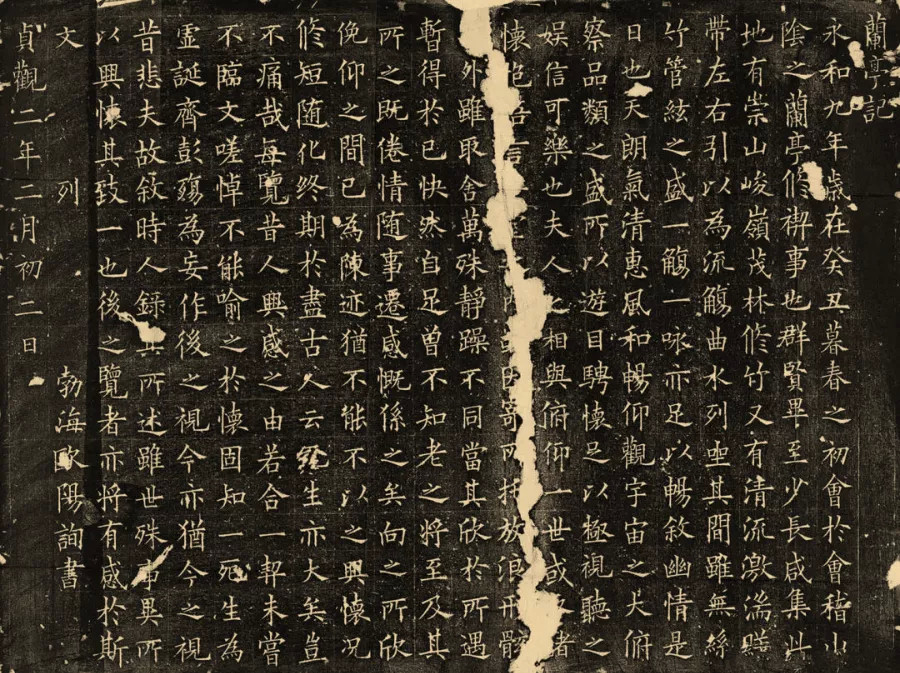 蘭亭記
永和九年歲在癸丑暮春之初會於會稽山
陰之蘭亭修禊事也群賢畢至少長咸集此
地有崇山峻嶺茂林修竹又有清流激湍暎
帶左右引以為流觴曲水列坐其間雖無絲
竹管絃之盛一觴一咏亦足以暢敘幽情是
日也天朗氣清惠風和暢仰觀宇宙之大俯
察品類之盛所以遊目騁懷足以極視聽之
娛信可樂也夫人之相與俯仰一世或諸
懷因寄所托放浪形骸
外雖取舍萬殊靜躁不同當其欣於所遇
暫得於己快然自足曽不知老之將至及其
所之既倦情随事遷感慨係之矣向之所欣
俛仰之間已為陳迹猶不能不以之興懷況
修短随化終期於盡古人云死生亦大矣豈
不痛哉每覽昔人興感之由若合一契未嘗
不臨文嗟悼不能喻之於懷固知一死生為
虛誕齊彭殤為妄作後之視今亦猶今之視
昔悲夫故敘時人録其所述雖世殊事異所
以興懷其致一也後之覽者亦將有感於斯
文 列 勃海歐陽詢書
貞觀二年二月初二日